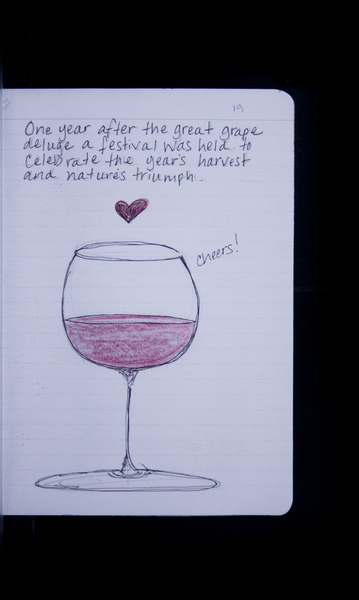 19
One year after the great grape
deluge a festival was held to
celebrate the year's harvest
and nature's triumph.
cheers!